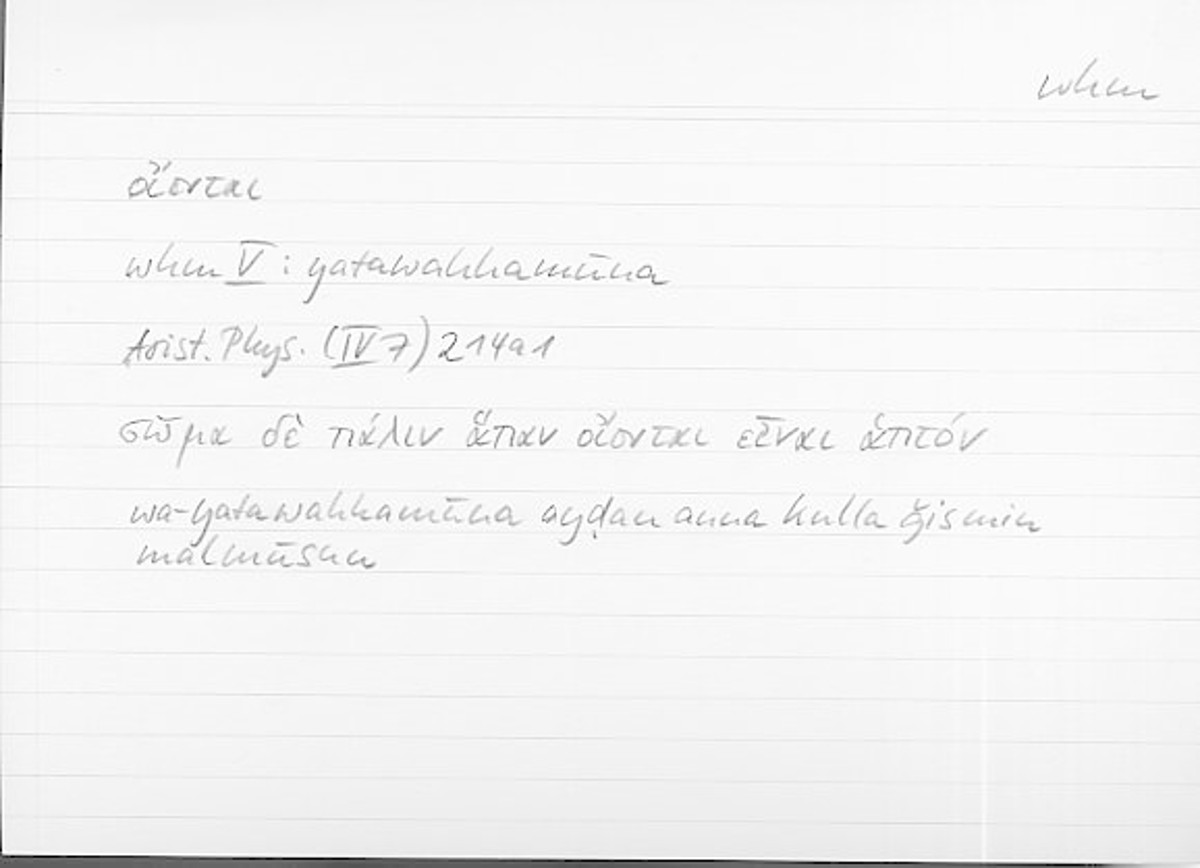 whm
οἴονται
whm V : yatawahhamūna
Arist. Phys. (IV 7) 214a1
σῶμα δὲ πάλιν ἅπαν οἴονται εἶναι ἁπτόν
wa-yatawahhamūna ayḍan anna kulla ǧismin
malmūsun